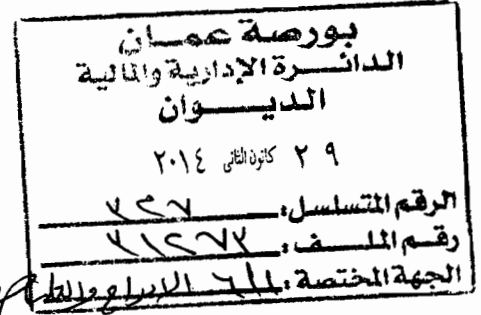 بورصة عمان
الدائرة الإدارية والمالية
الديوان
٢٩ كانون الثاني ٢٠١٤
الرقم المتسلسل: ٣٢٧
رقم الملف: ٣١٢٧٣
الجهة المختصة: الادراج